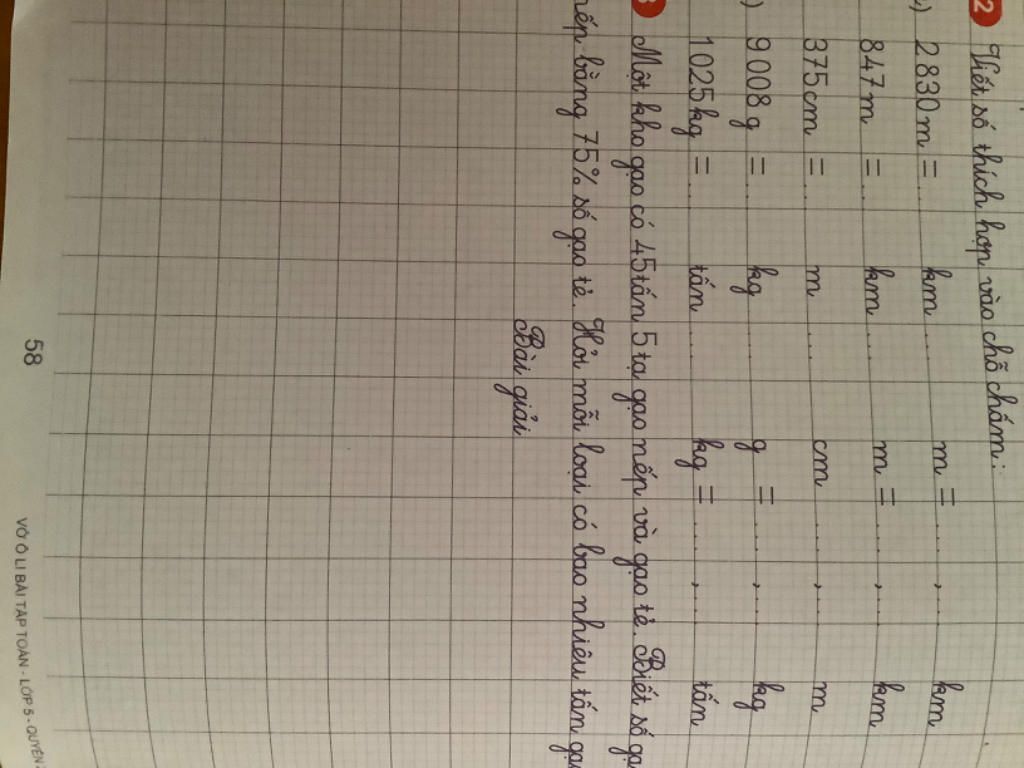 2 Viết số thích hợp vào chỗ chấm:
2830m = ... km ..... m = ..... , ..... km
847m = ... km ..... m = ..... , ..... km
375cm = ... m ..... cm ..... , ..... m
) 9 008 g = ... kg ..... g = ..... , ..... kg
1 025 kg = ... tấn ..... kg = ..... , ..... tấn
Một kho gạo có 45 tấn 5 tạ gạo nếp và gạo tẻ. Biết số
bằng 75% số gạo tẻ. Hỏi mỗi loại có bao nhiêu tấn
Bài giải
58
VỞ Ô LI BÀI TẬP TOÁN - LỚP 5 - QUYỂN